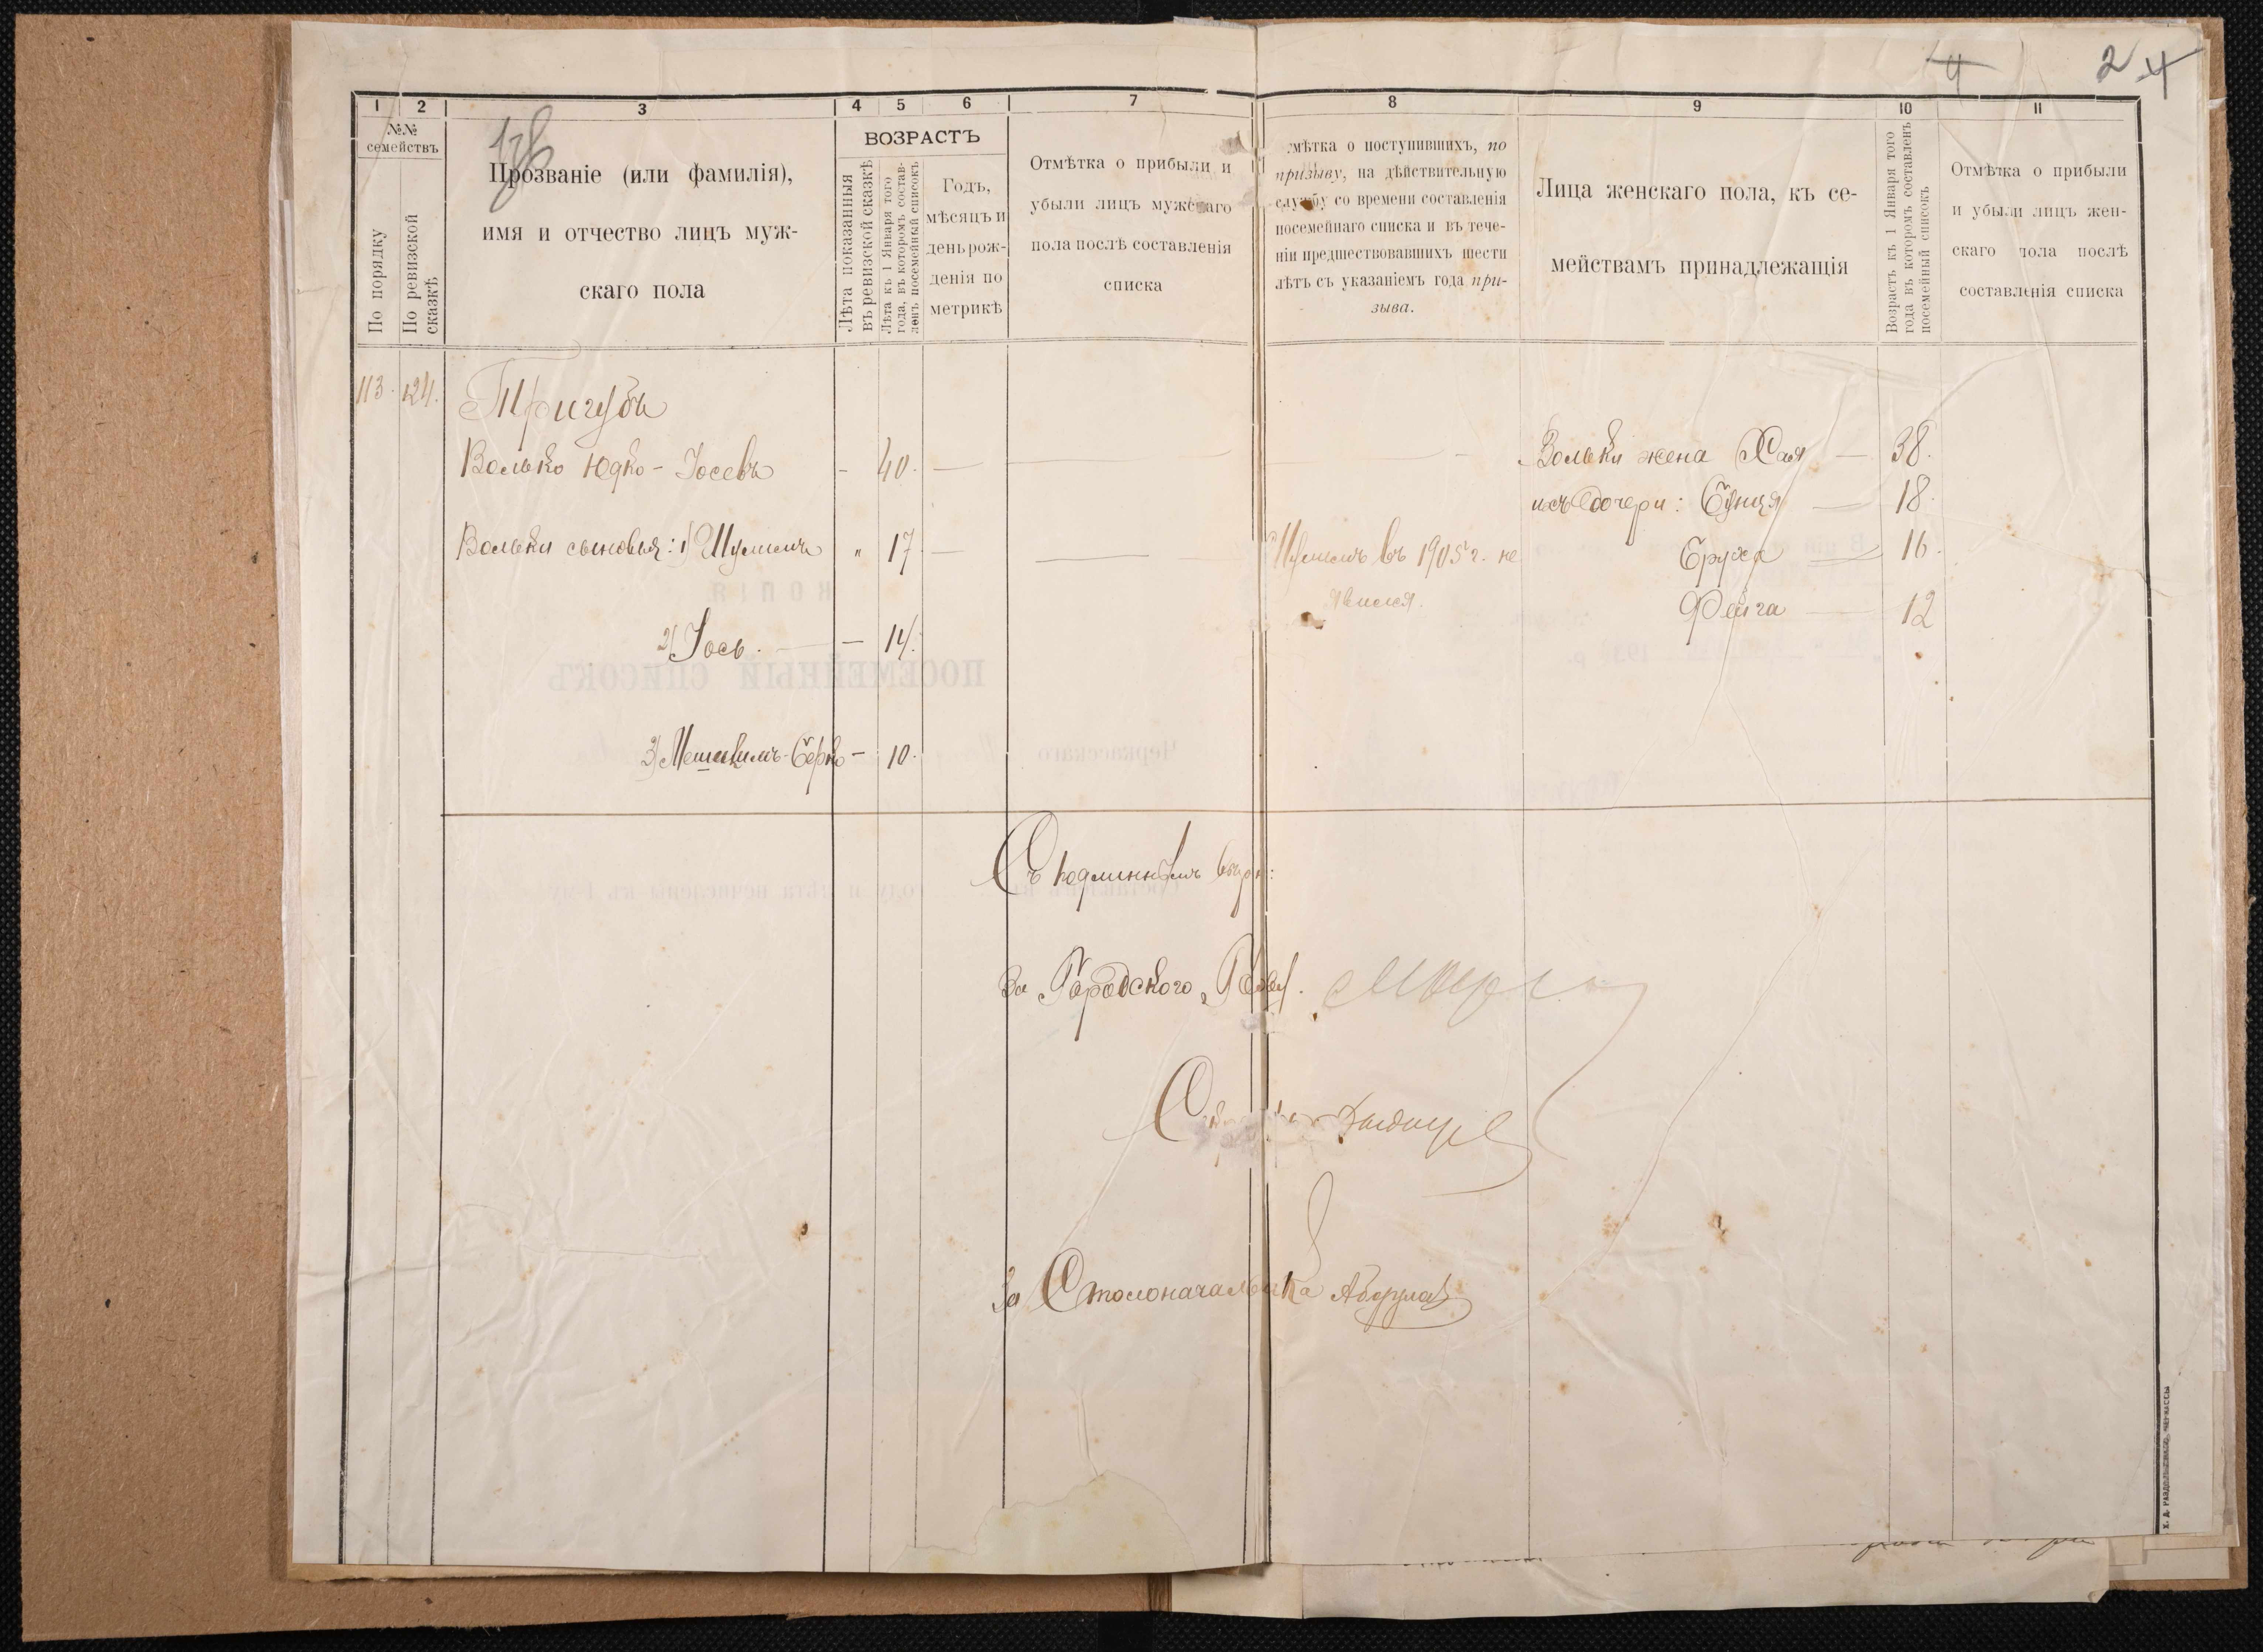 4
2 4
1 2 3 4 5 6 7 8 9 10 11
№№ семействъ
По порядку
По ревизской сказкѣ
Прозваніе (или фамилія),
имя и отчество лицъ муж-
скаго пола
ВОЗРАСТЪ
Лѣта показанныя
въ ревизской сказкѣ
Лѣта къ 1 Января того
года, въ которомъ состав-
ленъ посемейный списокъ
Годъ,
мѣсяцъ и
день рож-
денія по
метрикѣ
Отмѣтка о прибыли и
убыли лицъ мужскаго
пола послѣ составленія
списка
мѣтка о поступившихъ, по
призыву, на дѣйствительную
службу со времени составленія
посемейнаго списка и въ тече-
ніи предшествовавшихъ шести
лѣтъ съ указаніемъ года при-
зыва.
Лица женскаго пола, къ се-
мействамъ принадлежащія
Возрастъ къ 1 Января того
года въ которомъ составленъ
посемейный списокъ
Отмѣтка о прибыли
и убыли лицъ жен-
скаго пола послѣ
составленія списка
113. 124.
Тригубъ
Волько Юдко-Іосевъ - 40. —
Вольки сыновья: 1) Шулимъ " 17 —
2) Іось. — 14.
3) Берко — 10.
Шулимъ въ 1905 г. не
явился.
Вольки жена Хая — 38.
ихъ дочери: Буня — 18.
Бруха — 16.
Фейга — 12
Съ подлиннымъ вѣрно:
За Городского Голову
За Столоначальника
ПОСЕМЕЙНЫЙ СПИСОКЪ
КОПІЯ
Черкасскаго
Х. А. РАЗДОЛЬСКАГО, ЧЕРКАССЫ